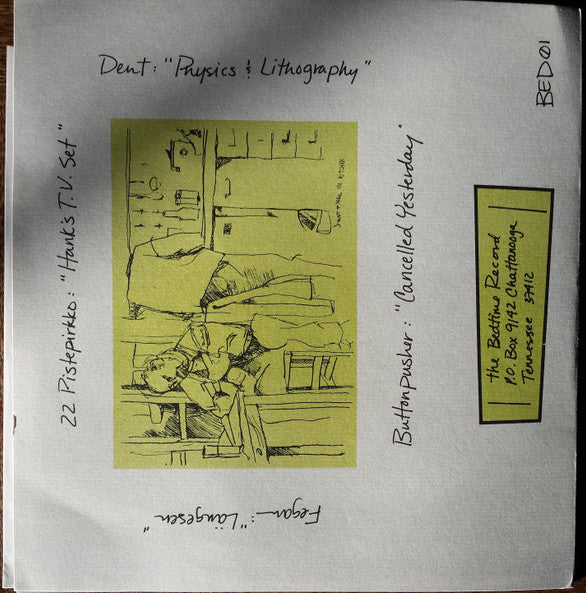 Dent: "Physics & Lithography"
22 Pistepirkko: "Hank's T.V. Set"
Buttonpusher: "Cancelled Yesterday"
Fegan: "Längesen"
BED01
the Bedtime Record
P.O. Box 9142 Chattanooga
Tennessee 37412